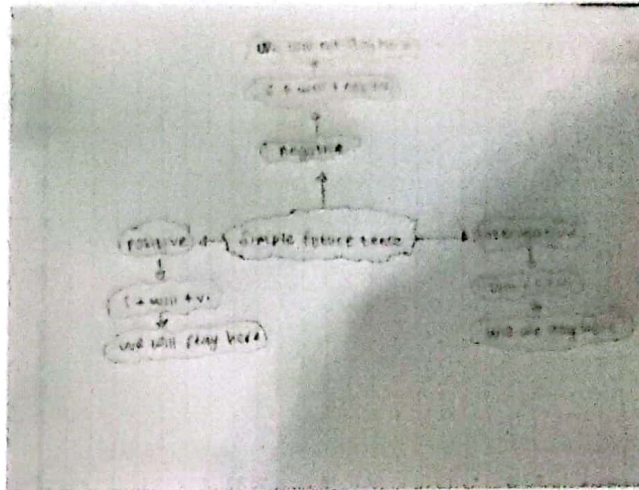 We will not stay here
S + will + not + V
negative
positive
Simple future tense
S + will + V1
We will stay here
Will we stay here